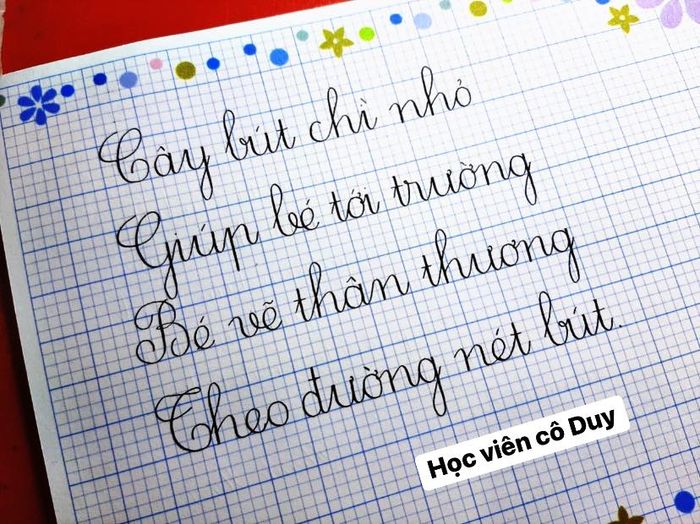 Cây bút chì nhỏ
Giúp bé tới trường
Bé vẽ thân thương
Theo đường nét bút.
Học viên cô Duy